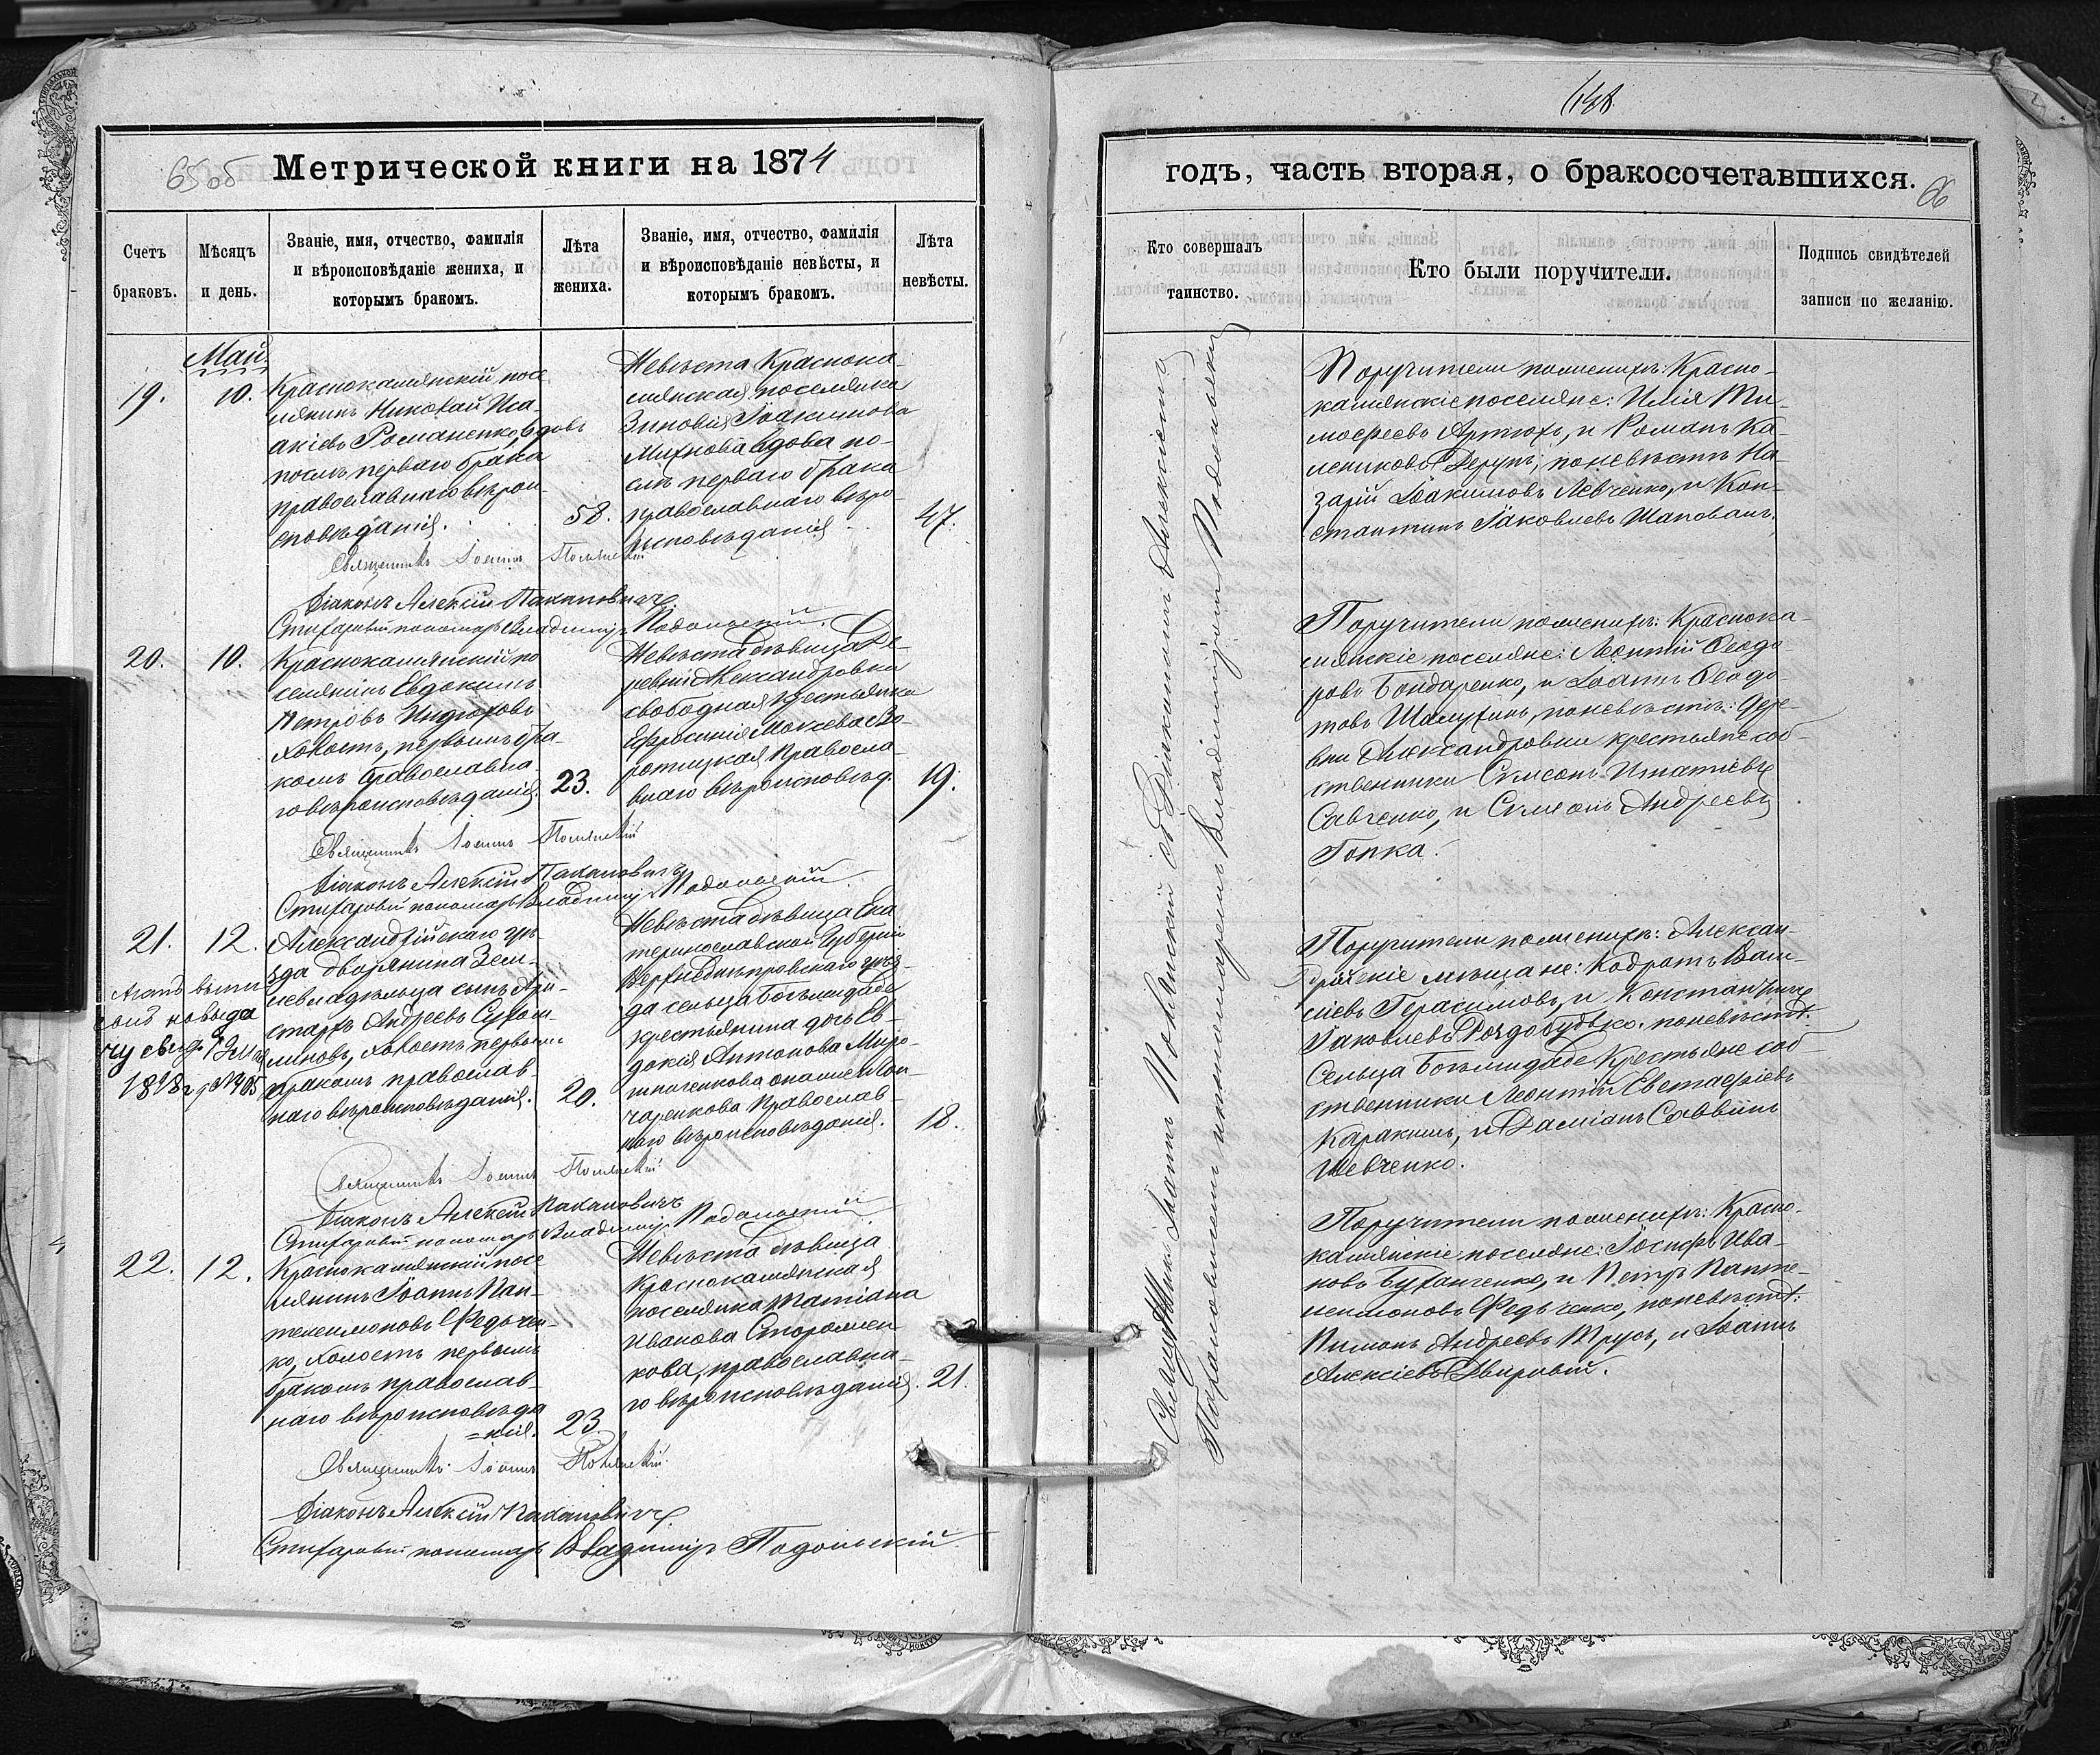 65 об
Метрической книги на 1874
Счетъ браковъ.
Мѣсяцъ и день.
Званіе, имя, отчество, фамилія
и вѣроисповѣданіе жениха, и
которымъ бракомъ.
Лѣта
жениха.
Званіе, имя, отчество, фамилія
и вѣроисповѣданіе невѣсты, и
которымъ бракомъ.
Лѣта
невѣсты.
Май
19.
10.
Краснокамянскій посе
лянинъ Николай Иса-
акіевъ Романенко, вдовъ
послѣ перваго брака
православнаго вѣрои-
сповѣданія.
58.
Невѣста Краснока-
мянская поселянка
Зиновія Іоакимова
Михнова вдова по-
слѣ перваго брака
православнаго вѣро-
исповѣданія
47.
Священникъ Іоаннъ Полянскій
Діаконъ Алексій Пахановичъ
Стихаровый пономарь Владиміръ Подольскій.
20.
10.
Краснокамянскій по
селянинъ Евдокимъ
Петровъ Индюковъ
холостъ, первымъ бра-
комъ Православна-
го вѣроисповѣданія.
23.
Невѣста дѣвица Де-
ревни Александровки
свободная крестьянка
Ефросинія Мокіева Во-
ротицкая Правосла-
внаго вѣроисповѣд.
19.
Священникъ Іоаннъ Полянскій
Діаконъ Алексій Пахановичъ
Стихаровый пономарь Владиміръ Подольскій.
21.
12.
выпи
новыда
1818
Александрійскаго уѣ-
зда дворянина Зем-
левладѣльца сынъ Ари-
стархъ Андреевъ Сухом-
линовъ, холостъ первымъ
бракомъ православ-
наго вѣроисповѣданія.
20.
Невѣста дѣвица Ека
теринославской Губерніи
Верхнеднѣпровскаго уѣз-
да сельца Богъмидабе
крестьянина дочь Ев-
докія Антонова Миро-
шниченкова
Православ-
наго вѣроисповѣданія.
18.
Священникъ Іоаннъ Полянскій
Діаконъ Алексій Пахановичъ
Стихаровый пономарь Владиміръ Подольскій
22.
12.
Краснокамянскій посе
лянинъ Іоаннъ Пан-
телеимоновъ Федьчен-
ко, холостъ первымъ
бракомъ православ-
наго вѣроисповѣда
=нія.
23.
Невѣста дѣвица
Краснокамянская
поселянка Татіана
Иванова Старомен
кова, православна-
го вѣроисповѣданія.
21.
Священникъ Іоаннъ Полянскій
Діаконъ Алексій Пахановичъ.
Стихаровый пономарь Владиміръ Подольскій.
66
годъ, часть вторая, о бракосочетавшихся.
Кто совершалъ
таинство.
Кто были поручители.
Подпись свидѣтелей
записи по желанію.
Священникъ Іоаннъ Полянскій съ Діакономъ Алексіемъ
Пахановичемъ и пономаремъ Владиміромъ Подольскимъ
Поручители по женихѣ: Красно-
камянскіе поселяне: Илія Ти-
мофеевъ Артюхъ, и Романъ Ка-
лениковъ Дерунъ; по невѣстѣ На-
зарій Іоакимовъ Левченко, и Кон-
стантинъ Іаковлевъ Шаповалъ.
Поручители по женихѣ: Краснока-
мянскіе поселяне: Леонтій Ѳеодо
ровъ Бондаренко, и Іоаннъ Ѳеодо-
товъ Шалухинъ, по невѣстѣ: Дере-
вни Александровки крестьяне соб-
ственники Симеонъ Игнатіевъ
Савченко, и Симеонъ Андреевъ
Гопка.
Поручители по женихѣ: Алексан-
дрійскіе мѣщане: Кодратъ Васи-
лiевъ Герасимовъ, и Константинъ
Іаковлевъ Роздобудько. по невѣстѣ:
Сельца Богъмидабе Крестьяне соб-
ственники Леонтій Евстафіевъ
Каракишъ, и Даміанъ Саввинъ
Шевченко.
Поручители по женихѣ: Красно-
камянскіе поселяне: Іосифъ Ива-
новъ Буханченко, и Петръ Панте-
леимоновъ Федьченко, по невѣстѣ:
Пимонъ Андреевъ Трусъ, и Іоаннъ
Алексіевъ Двировый.